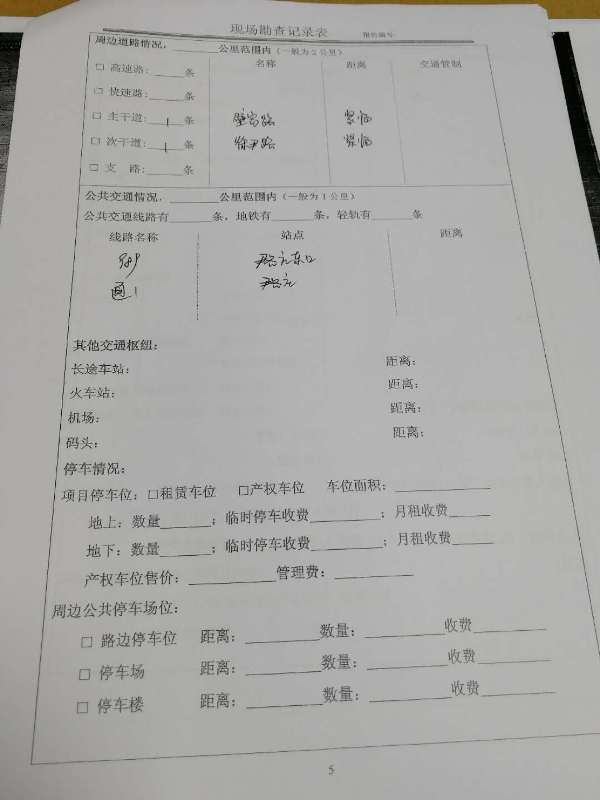 现场勘查记录表 报告编号:
周边道路情况,______公里范围内(一般为2公里)
名称 距离 交通管制
□ 高速路:____条
□ 快速路:____条
□ 主干道: 1 条 紧临
□ 次干道: 1 条 紧临
□ 支 路:____条
公共交通情况,______公里范围内(一般为1公里)
公共交通线路有______条,地铁有______条,轻轨有______条
线路名称 站点 距离
通1
其他交通枢纽:
长途车站: 距离:
火车站: 距离:
机场: 距离:
码头: 距离:
停车情况:
项目停车位:□租赁车位 □产权车位 车位面积:____________
地上:数量______;临时停车收费________;月租收费_____
地下:数量______;临时停车收费________;月租收费_____
产权车位售价:__________管理费:_________
周边公共停车场位:
□ 路边停车位 距离:________数量:________收费________
□ 停车场 距离:________数量:________收费________
□ 停车楼 距离:________数量:________收费________
5